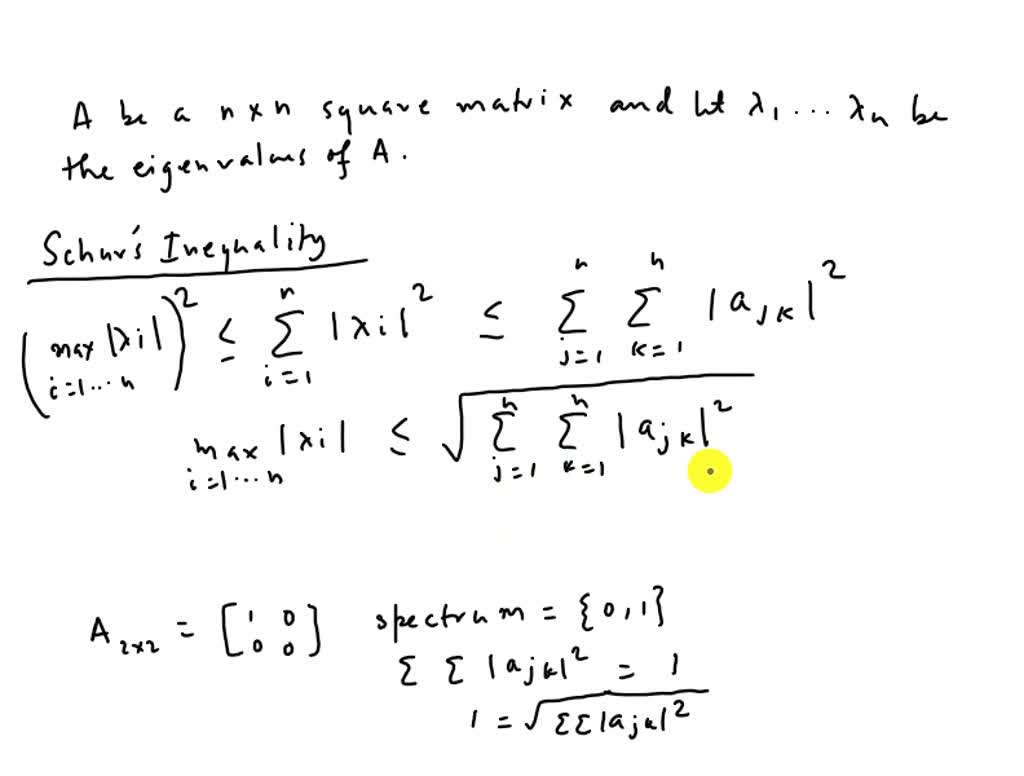 A be a n × n square matrix and let λ₁ ... λₙ be
the eigenvalues of A.
Schur's Inequality
(max_{i=1...n} |λi|)² ≤ Σ_{i=1}^{n} |λi|² ≤ Σ_{j=1}^{n} Σ_{k=1}^{n} |a_{jk}|²
max_{i=1...n} |λi| ≤ √(Σ_{j=1}^{n} Σ_{k=1}^{n} |a_{jk}|²)
A_{2×2} = [1 0; 0 0] spectrum = {0,1}
Σ Σ |a_{jk}|² = 1
1 = √(ΣΣ|a_{jk}|²)